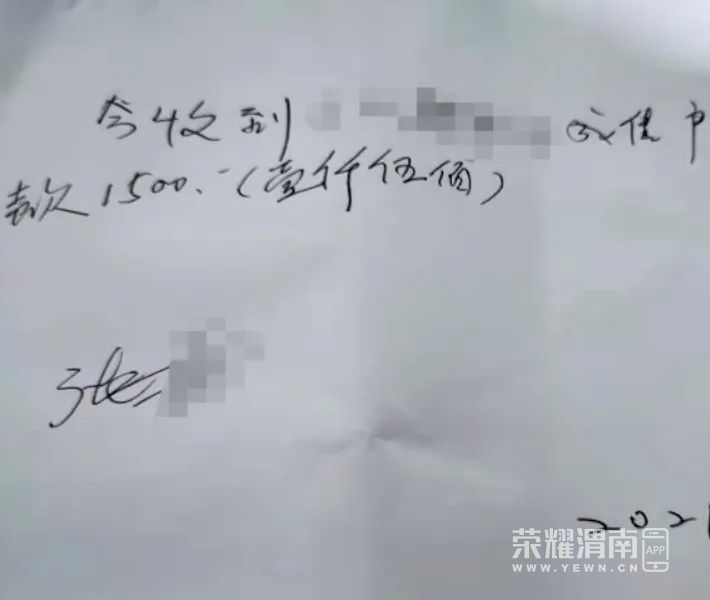 今收到 信中
款1500.-(壹仟伍佰)
张
2021
荣耀渭南 APP
WWW.YEWN.CN